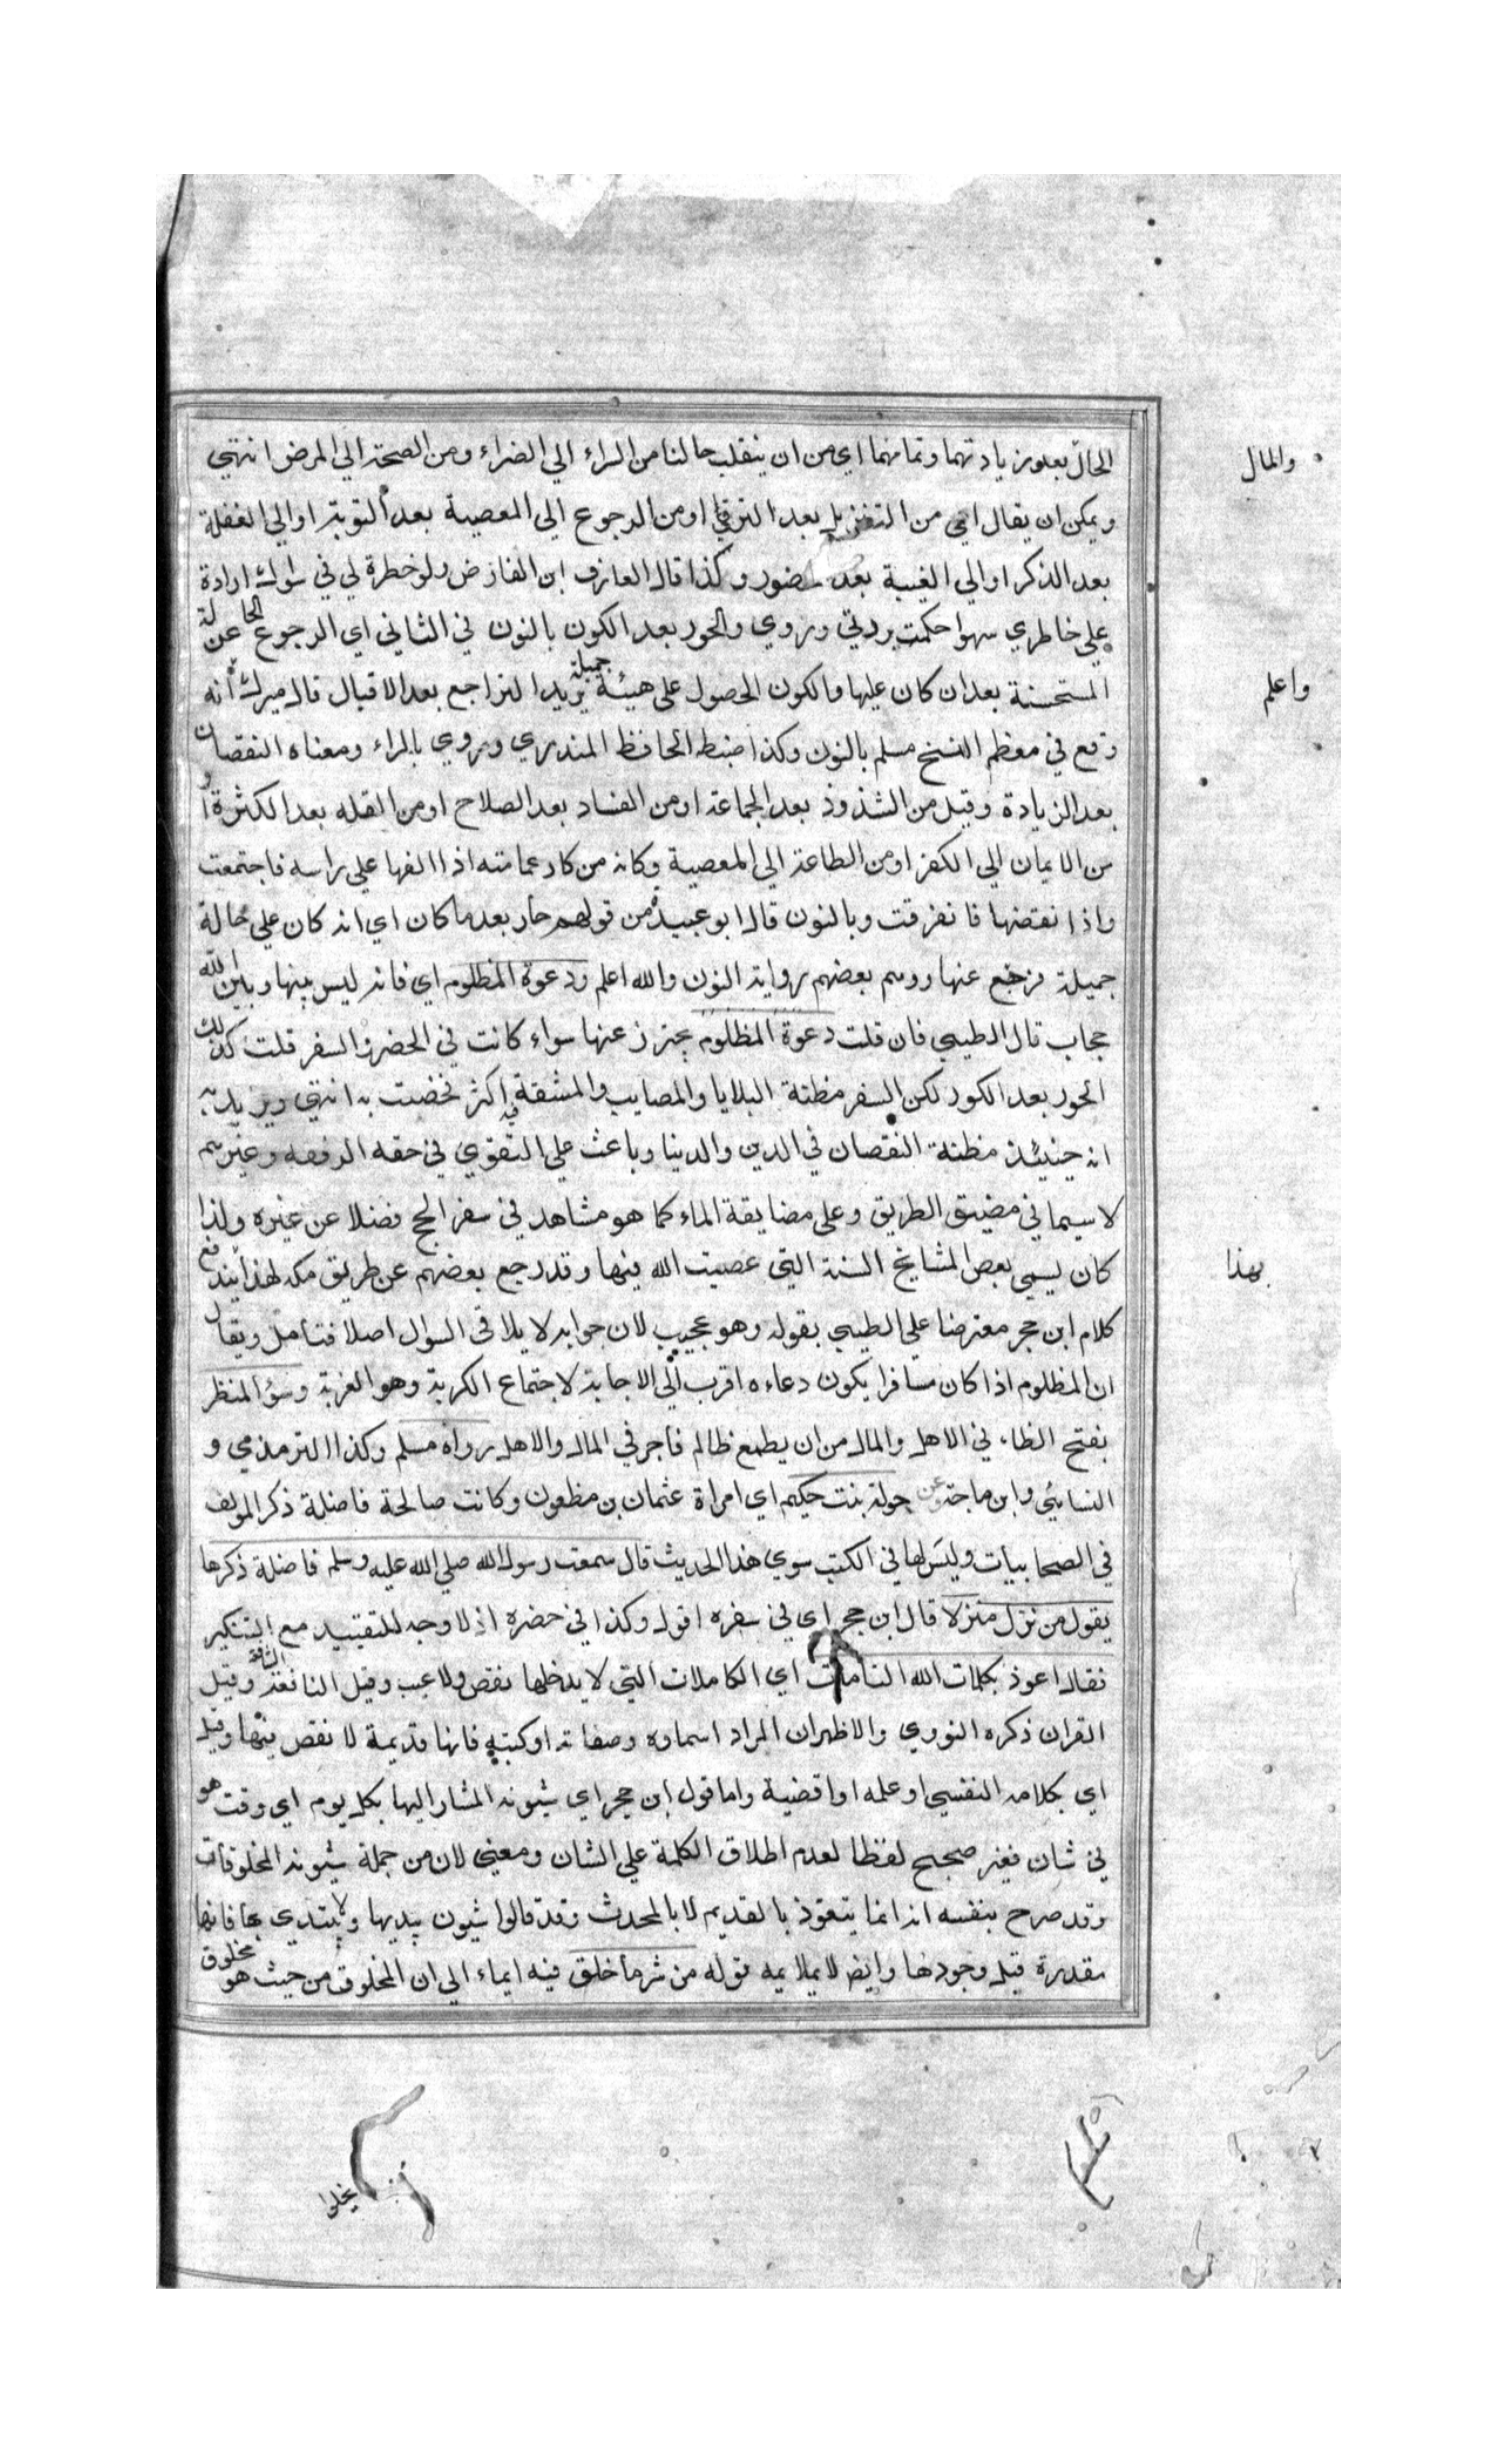 الحال بعد زيادتهما وتمامهما اي من ان ينقلب حالنا من السراء الي الضراء ومن الصحة الي المرض انتهي
والمال
ويمكن ان يقال اي من التنزيل بعد الترقي او من الرجوع الي المعصية بعد التوبة او الي الغفلة
بعد الذكر او الي الغيبة بعد حضور وكذا قال العارف ابن الفارض ولو خطرة لي في سواك ارادة
علي خاطري سهوا حكمت بردتي وروي والحور بعد الكون بالنون في الثاني اي الرجوع عن الحالة
المستحسنة بعد ان كان عليها والكون الحصول علي هيئة جميلة يريد التراجع بعد الاقبال قال ميرك انه
واعلم
وقع في معظم النسخ مسلم بالنون وكذا ضبط الحافظ المندري وروي بالراء ومعناه النقصان
بعد الزيادة وقيل من الشذوذ بعد الجماعة او من الفساد بعد الصلاح او من القله بعد الكثرة او
من الايمان الي الكفر او من الطاعة الي المعصية وكانه من كار عمامته اذا الفها علي راسه فاجتمعت
واذا نقضها فانفرقت وبالنون قال ابو عبيد من قولهم حار بعد ما كان اي انه كان علي حالة
جميلة فرجع عنها ووهم بعضهم رواية النون والله اعلم ودعوة المظلوم اي فانه ليس بينها وبين الله
حجاب قال الطيبي فان قلت دعوة المظلوم يحترز عنها سواء كانت في الحضر والسفر قلت كذلك
الحور بعد الكور لكن السفر مظنة البلايا والمصايب والمشقة فيه اكثر فخضت به انتهي ويريد به
انه حينئذ مظنة النقصان في الدين والدنيا وباعث علي التقوي في حقه الرفقه وغيرهم
لا سيما في مضيق الطريق وعلي مضايقة الماء كما هو مشاهد في سفر الحج فضلا عن غيره ولذا
كان يسمي بعض المشايخ السنة التي عصيت الله فيها وقد رجع بعضهم عن طريق مكه لهذا يندفع
بهذا
كلام ابن حجر معترضا علي الطيبي بقوله وهو عجيب لان جوابه لا يلاقى السوال اصلا فتامل ويقال
ان المظلوم اذا كان مسافرا يكون دعاءه اقرب الي الاجابة لاجتماع الكربة وهو الغربة وسؤ المنظر
بفتح الظاء في الاهل والمال من ان يطمع ظالم فاجر في المال والاهل رواه مسلم وكذا الترمذي و
النسايئي وابن ماجة عن حولة بنت حكيم اي امراة عثمان بن مظعون وكانت صالحة فاضلة ذكر المولف
في الصحابيات وليس لها في الكتب سوي هذا الحديث قال سمعت رسول الله صلي الله عليه وسلم فاضلة ذكرها
يقول من نزل منزلا قال ابن حجر اي في سفره اقول وكذا في حضره اذ لا وجه للتقييد مع التنكير
فقال اعوذ بكلمات الله التامات اي الكاملات التي لا يدخلها نقص ولا عيب وقيل النافعة الشافية وقيل
القران ذكره النووي والاظهر ان المراد اسماوه وصفاته او كتبه فانها قديمة لا نقص فيها وقيل
اي بكلامه النفسي او علمه او اقضية واما قول ابن حجر اي شيونه المشار اليها بكل يوم اي وقت هو
في شان فغير صحيح لفظا لعدم اطلاق الكلمة علي الشان ومعني لان من جملة شيونه المخلوقات
وقد صرح بنفسه انه انما يتعوذ بالقديم لا بالمحدث وقد قالوا شيون يبديها ولا يبتدي بها فانها
مقدرة قبل وجودها وايضا لا يملايمه قوله من شر ما خلق فيه ايماء الي ان المخلوق من حيث هو مخلوق